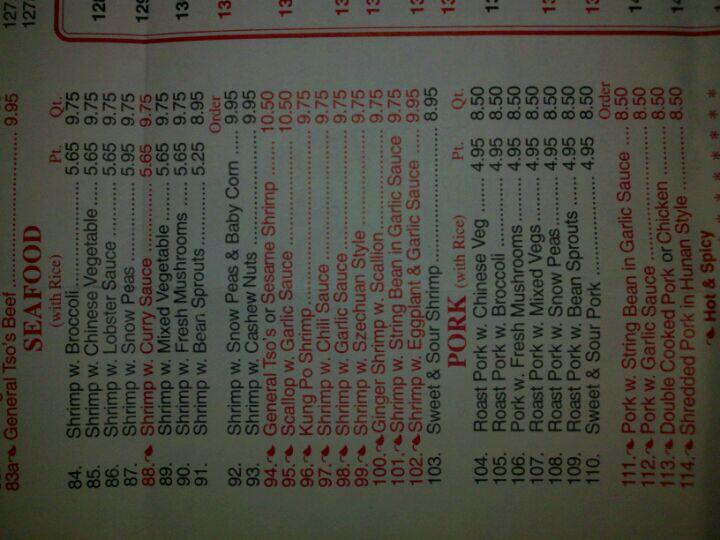 83a General Tso's Beef 9.95
SEAFOOD
(with Rice) Pt. Qt.
84. Shrimp w. Broccoli 5.65 9.75
85. Shrimp w. Chinese Vegetable 5.65 9.75
86. Shrimp w. Lobster Sauce 5.65 9.75
87. Shrimp w. Snow Peas 5.95 9.75
88. Shrimp w. Curry Sauce 5.65 9.75
89. Shrimp w. Mixed Vegetable 5.65 9.75
90. Shrimp w. Fresh Mushrooms 5.65 9.75
91. Shrimp w. Bean Sprouts 5.25 8.95
Order
92. Shrimp w. Snow Peas & Baby Corn 9.95
93. Shrimp w. Cashew Nuts 9.95
94. General Tso's or Sesame Shrimp 10.50
95. Scallop w. Garlic Sauce 10.50
96. Kung Po Shrimp 9.75
97. Shrimp w. Chili Sauce 9.75
98. Shrimp w. Garlic Sauce 9.75
99. Shrimp w. Szechuan Style 9.75
100. Ginger Shrimp w. Scallion 9.75
101. Shrimp w. String Bean in Garlic Sauce 9.75
102. Shrimp w. Eggplant & Garlic Sauce 9.95
103. Sweet & Sour Shrimp 8.95
PORK (with Rice) Pt. Qt.
104. Roast Pork w. Chinese Veg 4.95 8.50
105. Roast Pork w. Broccoli 4.95 8.50
106. Pork w. Fresh Mushrooms 4.95 8.50
107. Roast Pork w. Mixed Vegs 4.95 8.50
108. Roast Pork w. Snow Peas 4.95 8.50
109. Roast Pork w. Bean Sprouts 4.95 8.50
110. Sweet & Sour Pork 4.95 8.50
Order
111. Pork w. String Bean in Garlic Sauce 8.50
112. Pork w. Garlic Sauce 8.50
113. Double Cooked Pork or Chicken 8.50
114. Shredded Pork in Hunan Style 8.50
Hot & Spicy